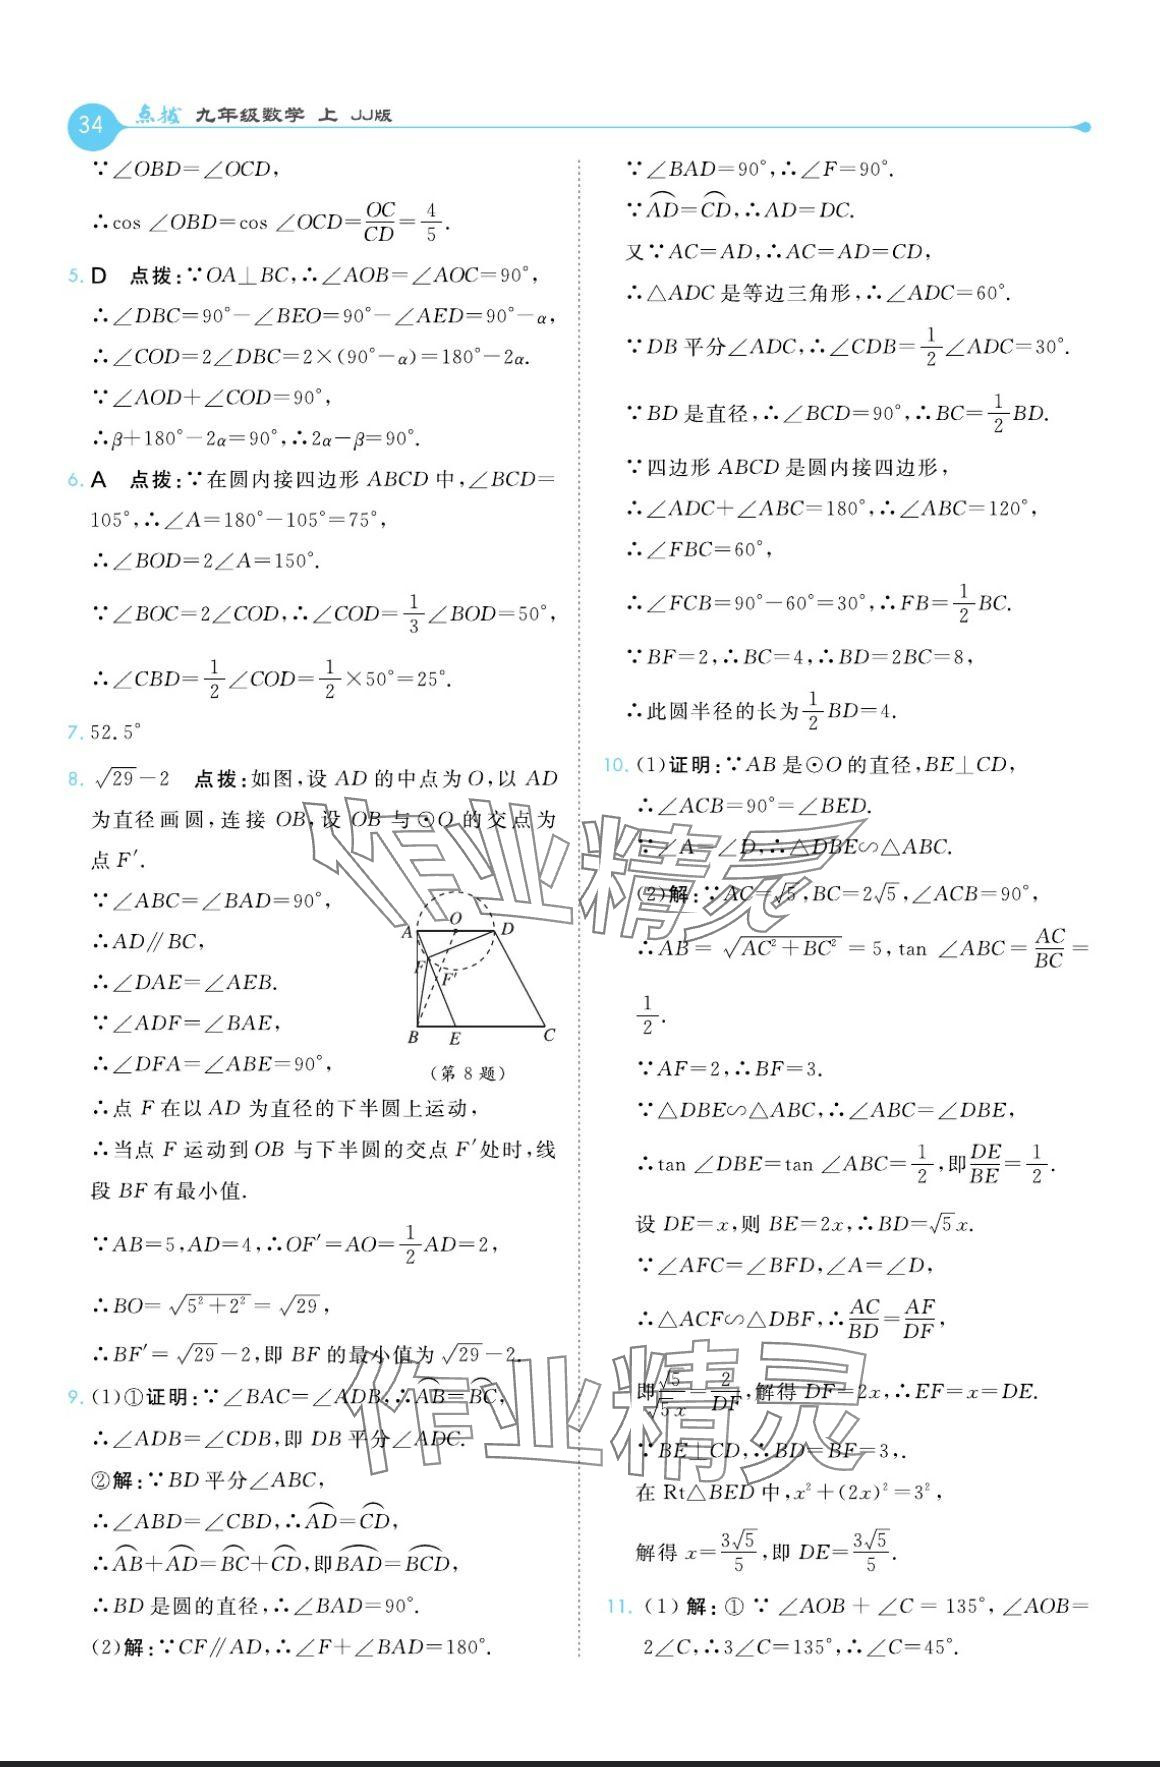 34 点拨 九年级数学 上 JJ版
∵∠OBD=∠OCD,
∴cos ∠OBD=cos ∠OCD=OC/CD=4/5.
5. D 点拨:∵OA⊥BC,∴∠AOB=∠AOC=90°,
∴∠DBC=90°-∠BEO=90°-∠AED=90°-α,
∴∠COD=2∠DBC=2×(90°-α)=180°-2α.
∵∠AOD+∠COD=90°,
∴β+180°-2α=90°,∴2α-β=90°.
6. A 点拨:∵在圆内接四边形 ABCD 中,∠BCD=
105°,∴∠A=180°-105°=75°,
∴∠BOD=2∠A=150°.
∵∠BOC=2∠COD,∴∠COD=1/3∠BOD=50°,
∴∠CBD=1/2∠COD=1/2×50°=25°.
7. 52.5°
8. √29-2 点拨:如图,设 AD 的中点为 O,以 AD
为直径画圆,连接 OB,设 OB 与⊙O 的交点为
点 F′.
∵∠ABC=∠BAD=90°,
∴AD∥BC,
∴∠DAE=∠AEB.
∵∠ADF=∠BAE,
∴∠DFA=∠ABE=90°,
A O D F F′ B E C
(第 8 题)
∴点 F 在以 AD 为直径的下半圆上运动,
∴当点 F 运动到 OB 与下半圆的交点 F′处时,线
段 BF 有最小值.
∵AB=5,AD=4,∴OF′=AO=1/2AD=2,
∴BO=√(5²+2²)=√29,
∴BF′=√29-2,即 BF 的最小值为√29-2.
9. (1)①证明:∵∠BAC=∠ADB,∴A͡B=B͡C,
∴∠ADB=∠CDB,即 DB 平分∠ADC.
②解:∵BD 平分∠ABC,
∴∠ABD=∠CBD,∴A͡D=C͡D,
∴A͡B+A͡D=B͡C+C͡D,即B͡AD=B͡CD,
∴BD 是圆的直径,∴∠BAD=90°.
(2)解:∵CF∥AD,∴∠F+∠BAD=180°.
∵∠BAD=90°,∴∠F=90°.
∵A͡D=C͡D,∴AD=DC.
又∵AC=AD,∴AC=AD=CD,
∴△ADC 是等边三角形,∴∠ADC=60°.
∵DB 平分∠ADC,∴∠CDB=1/2∠ADC=30°.
∵BD 是直径,∴∠BCD=90°,∴BC=1/2BD.
∵四边形 ABCD 是圆内接四边形,
∴∠ADC+∠ABC=180°,∴∠ABC=120°,
∴∠FBC=60°,
∴∠FCB=90°-60°=30°,∴FB=1/2BC.
∵BF=2,∴BC=4,∴BD=2BC=8,
∴此圆半径的长为1/2BD=4.
10. (1)证明:∵AB 是⊙O 的直径,BE⊥CD,
∴∠ACB=90°=∠BED.
∵∠A=∠D,∴△DBE∽△ABC.
(2)解:∵AC=√5,BC=2√5,∠ACB=90°,
∴AB=√(AC²+BC²)=5,tan ∠ABC=AC/BC=
1/2.
∵AF=2,∴BF=3.
∵△DBE∽△ABC,∴∠ABC=∠DBE,
∴tan ∠DBE=tan ∠ABC=1/2,即DE/BE=1/2.
设 DE=x,则 BE=2x,∴BD=√5x.
∵∠AFC=∠BFD,∠A=∠D,
∴△ACF∽△DBF,∴AC/BD=AF/DF,
即√5/√5x=2/DF,解得 DF=2x,∴EF=x=DE.
∵BE⊥CD,∴BD=BF=3,.
在 Rt△BED 中,x²+(2x)²=3²,
解得 x=3√5/5,即 DE=3√5/5.
11. (1)解:①∵∠AOB+∠C=135°,∠AOB=
2∠C,∴3∠C=135°,∴∠C=45°.
作业精灵
作业精灵